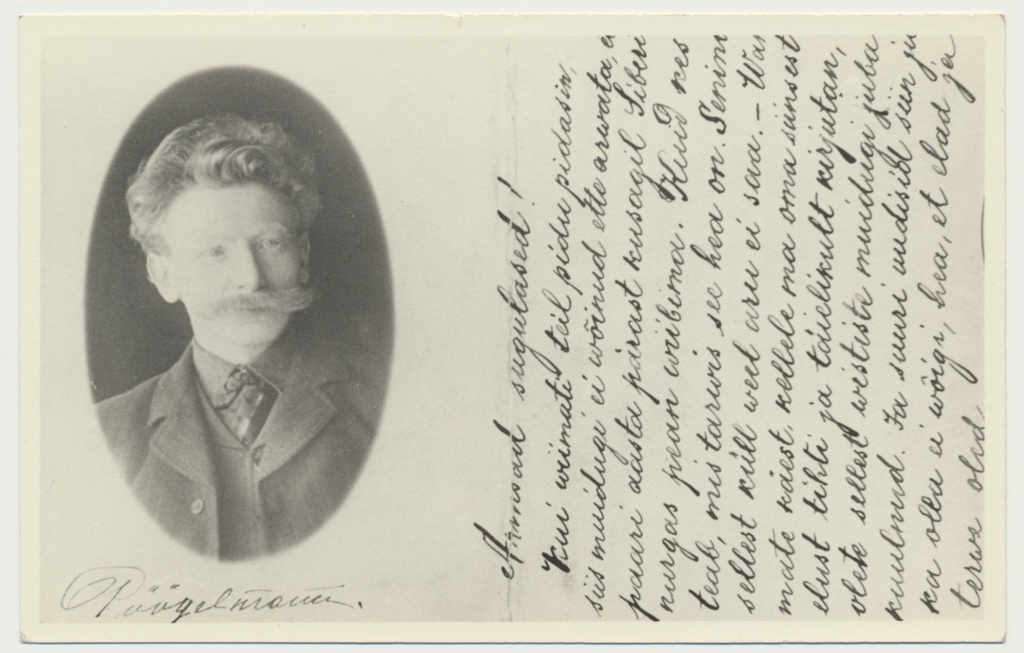 Pöögelmann.
Armsad sugulased!
Kui viimati teil pidu pidasin,
siis muidugi ei wõinud ette arwata, e
paari aasta pärast kusagil Siberi
nurgas pean wiibima. Kuid kes
teab, mis tarwis see hea on. Senini
sellest küll weel aru ei saa. – Wan
mate käest, kellele ma oma siinsest
elust tihti ja täielikult kirjutan,
olete sellest wististe muidugi juba
kuulnud. Ja suuri uudisid siin ju
ka olla ei wõigi, hea, et elad ja
terwe oled